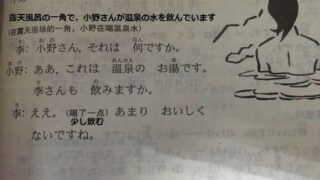 露天風呂の一角で、小野さんが温泉の水を飲んでいます
(在露天浴场的一角，小野在喝温泉水)
李：小野さん、それは 何ですか。
小野：ああ、これは 温泉の お湯です。
李さんも 飲みますか。
李：ええ。（喝了一点）あまり おいしく
少し飲む
ないですね。